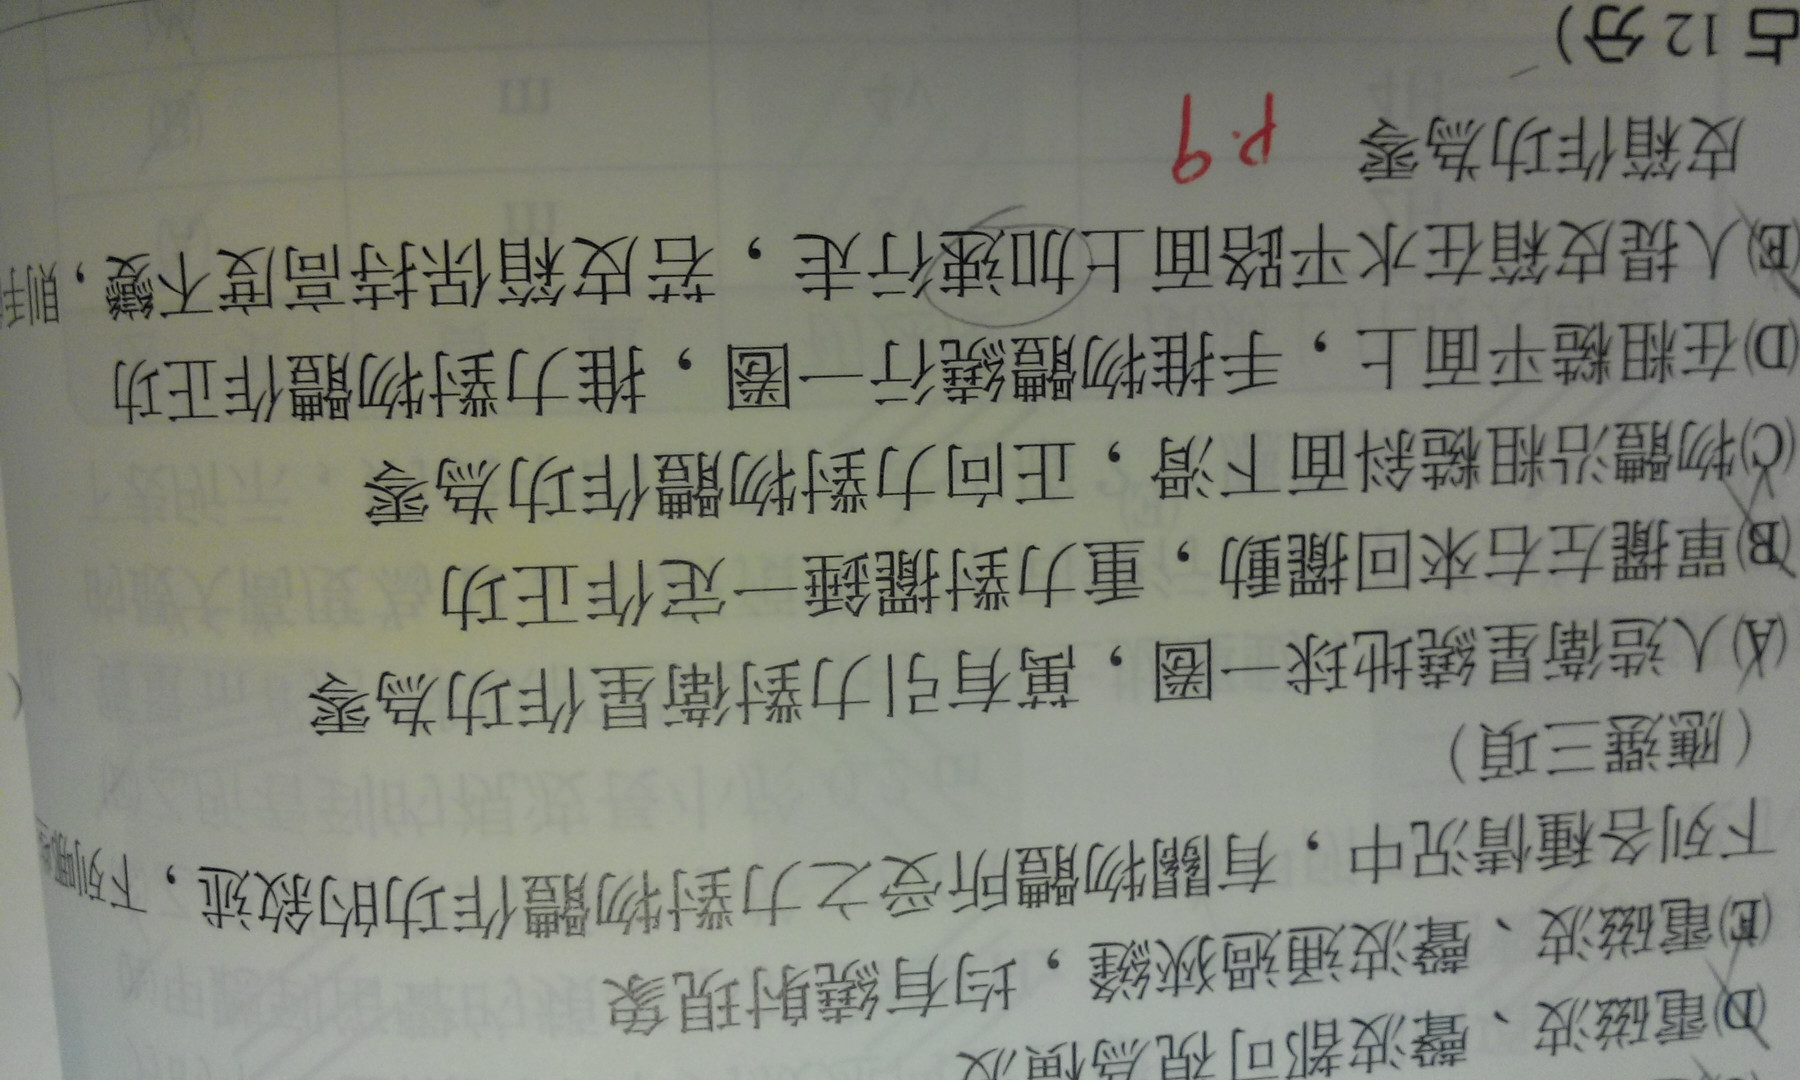 (D)電磁波、聲波都可視為橫波
(E)電磁波、聲波通過狹縫，均有繞射現象
下列各種情況中，有關物體所受之力對物體作功的敘述，下列哪些
（應選三項）
(A)人造衛星繞地球一圈，萬有引力對衛星作功為零
(B)單擺左右來回擺動，重力對擺錘一定作正功
(C)物體沿粗糙斜面下滑，正向力對物體作功為零
(D)在粗糙平面上，手推物體繞行一圈，推力對物體作正功
(E)人提皮箱在水平路面上加速行走，若皮箱保持高度不變，則
皮箱作功為零 P.9
占12分）